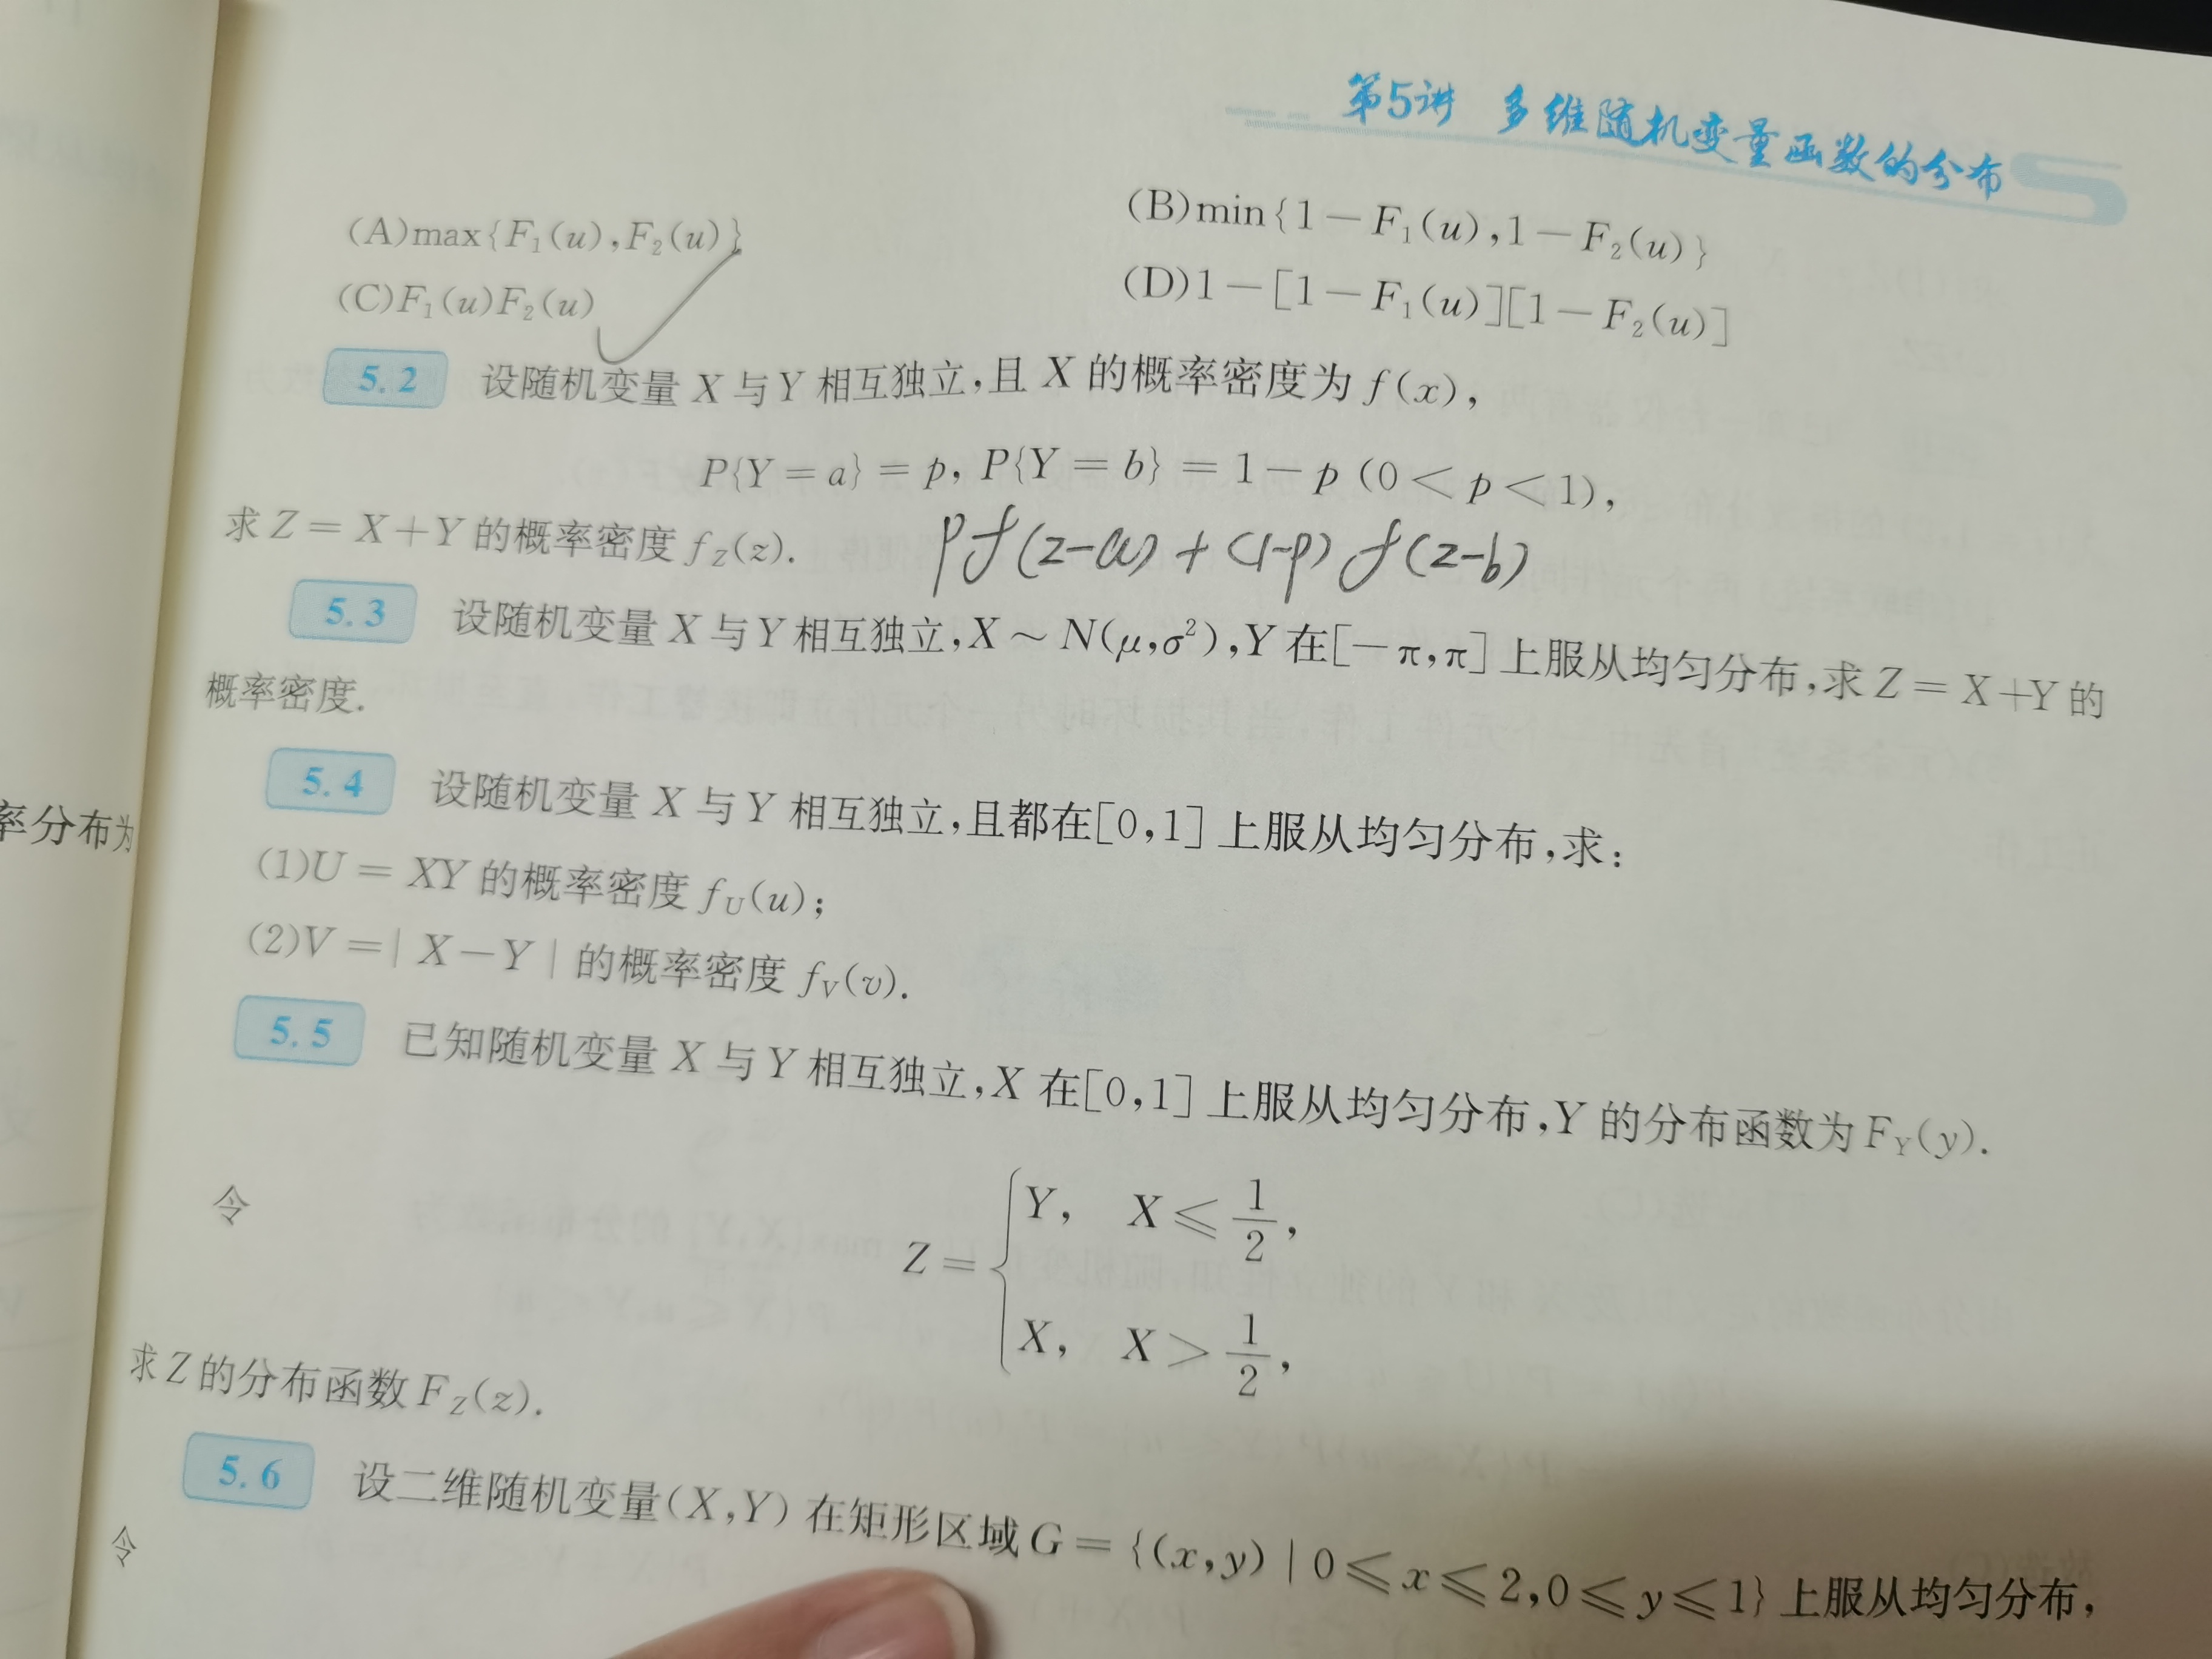 第5讲 多维随机变量函数的分布
(A)max{F₁(u),F₂(u)} (B)min{1－F₁(u),1－F₂(u)}
(C)F₁(u)F₂(u) (D)1－[1－F₁(u)][1－F₂(u)]
5.2 设随机变量 X 与 Y 相互独立,且 X 的概率密度为 f(x),
P{Y＝a}＝p, P{Y＝b}＝1－p (0＜p＜1),
求 Z＝X＋Y 的概率密度 f_Z(z). pf(z-a)+(1-p)f(z-b)
5.3 设随机变量 X 与 Y 相互独立,X～N(μ,σ²),Y 在[－π,π]上服从均匀分布,求 Z＝X＋Y 的
概率密度.
5.4 设随机变量 X 与 Y 相互独立,且都在[0,1]上服从均匀分布,求:
率分布为
(1)U＝XY 的概率密度 f_U(u);
(2)V＝|X－Y|的概率密度 f_V(v).
5.5 已知随机变量 X 与 Y 相互独立,X 在[0,1]上服从均匀分布,Y 的分布函数为 F_Y(y).
令
Z＝{Y, X≤1/2,
X, X＞1/2,
求 Z 的分布函数 F_Z(z).
5.6 设二维随机变量(X,Y)在矩形区域 G＝{(x,y)|0≤x≤2,0≤y≤1}上服从均匀分布,
令